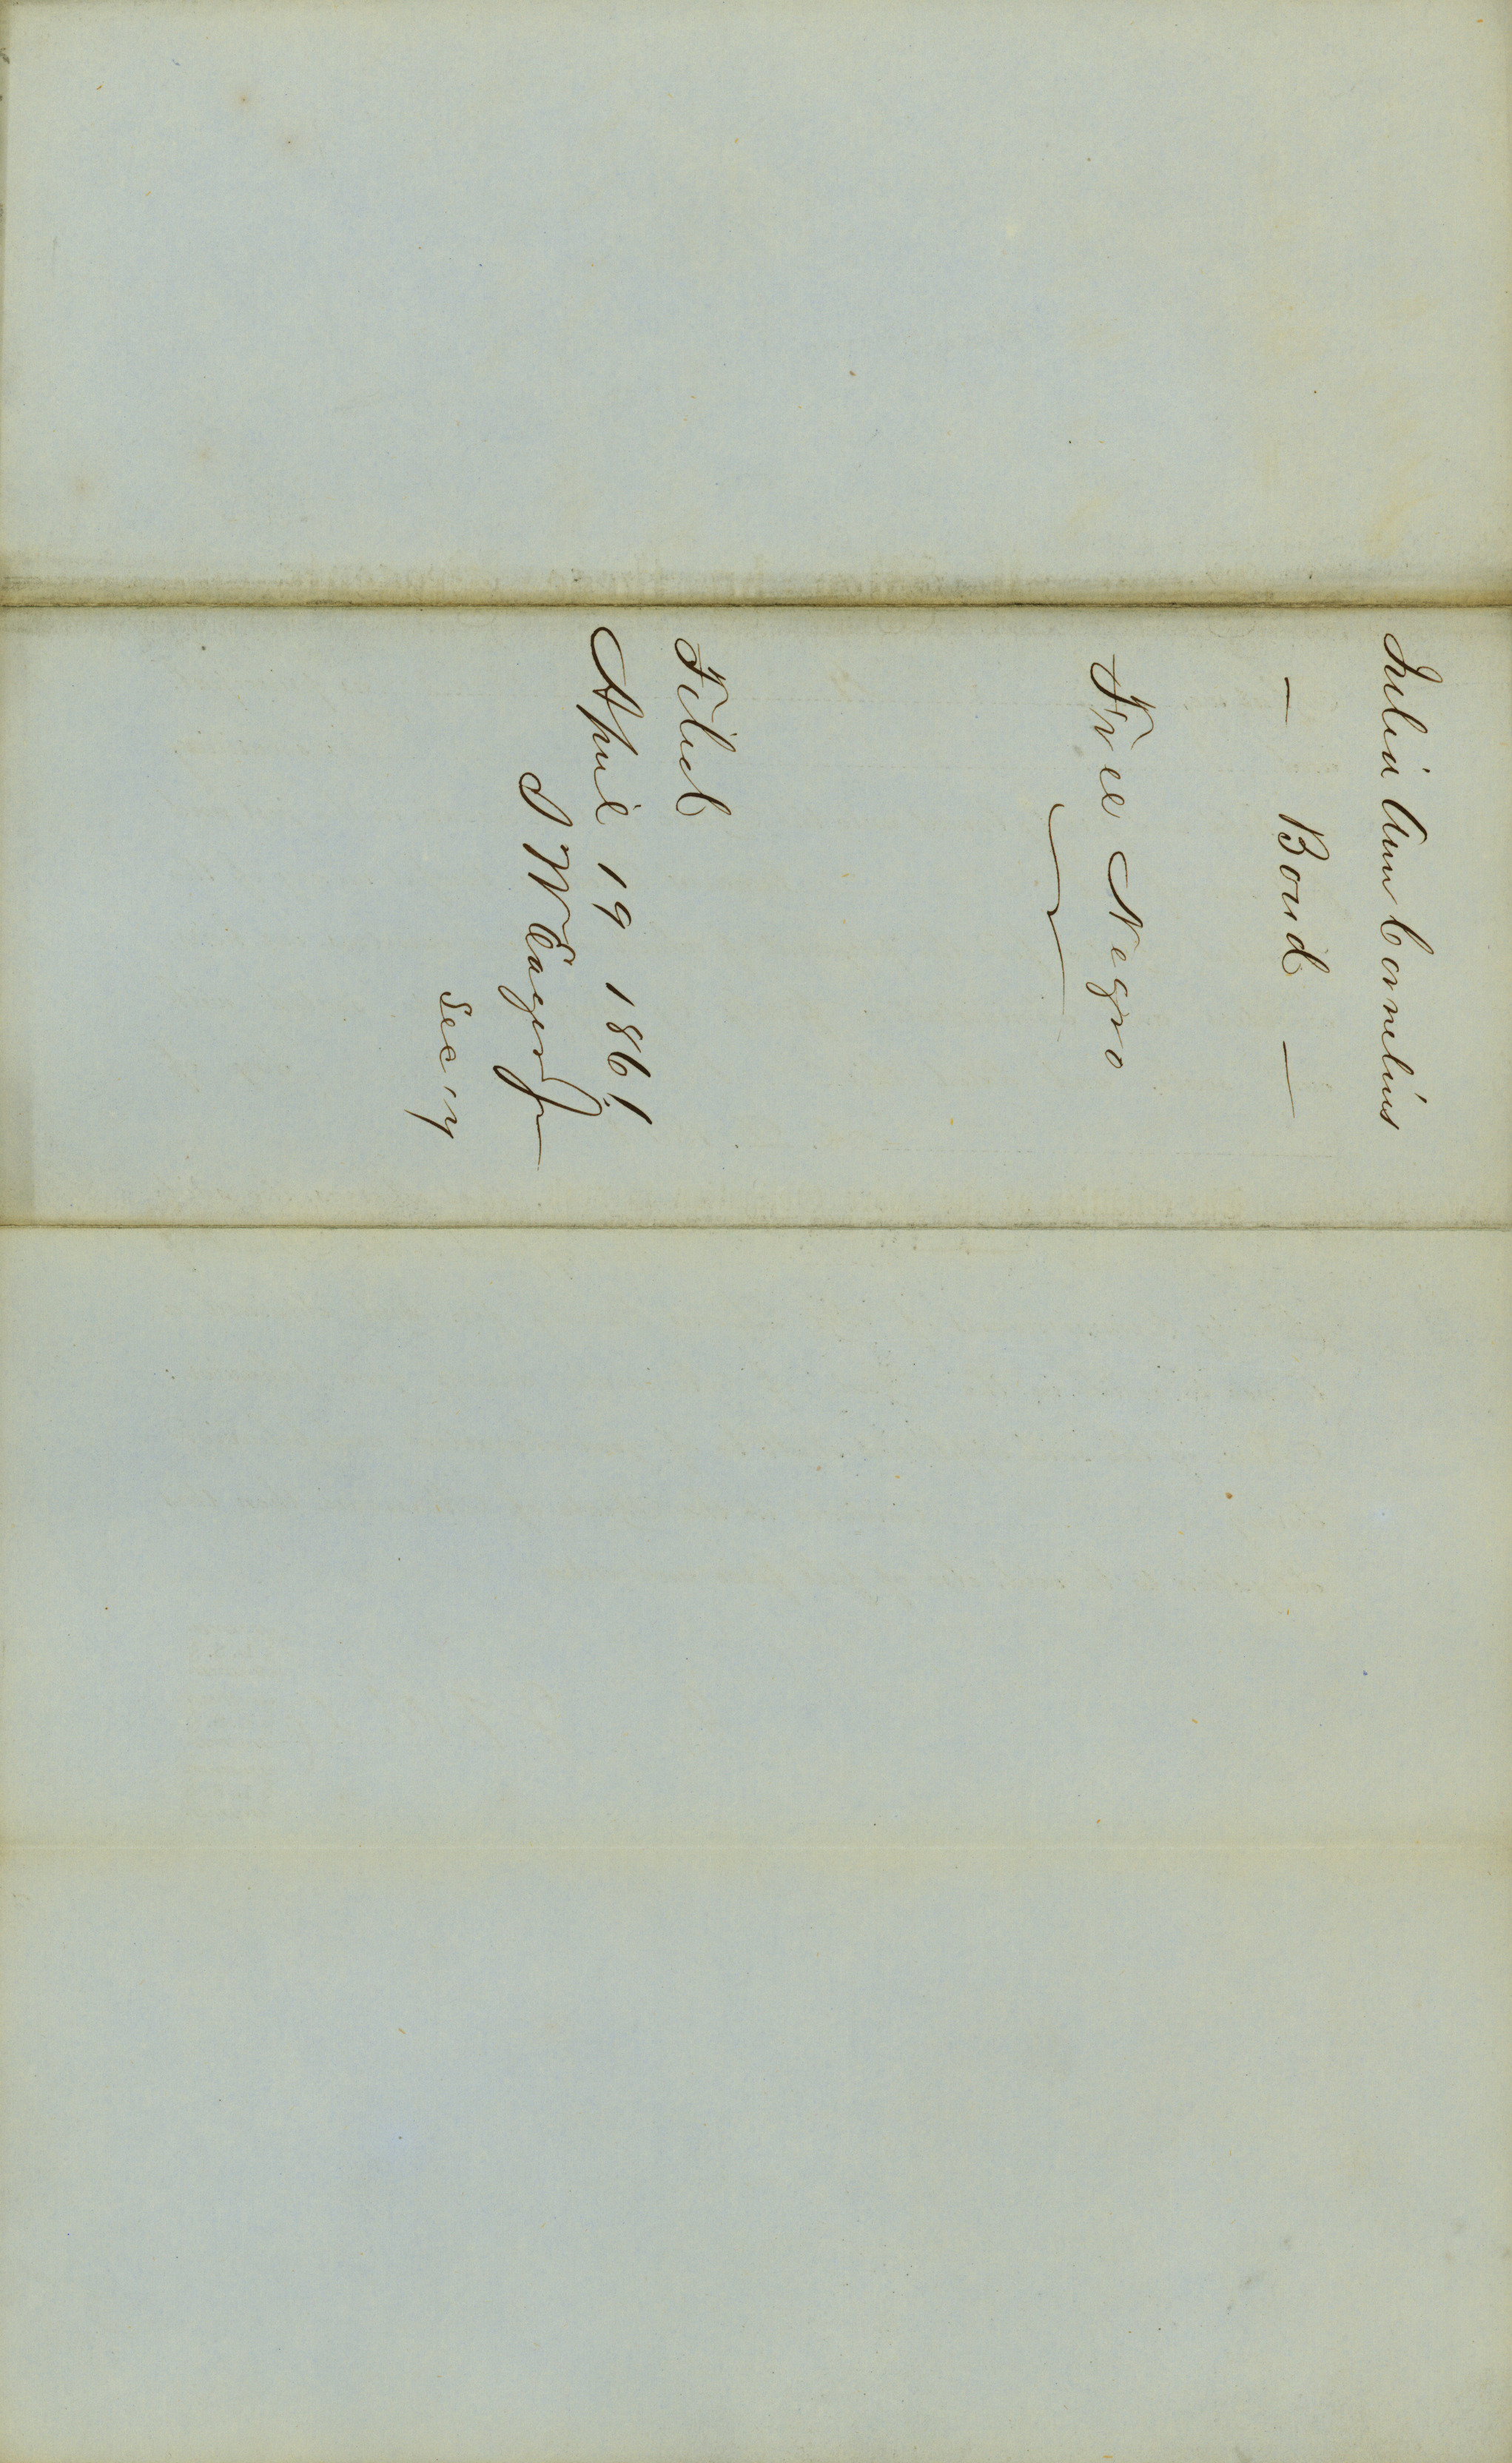 Julia Ann Cornelius
— Bond —
Free Negro
Filed
April 19 1861
S W Eager Jr
Sec'y